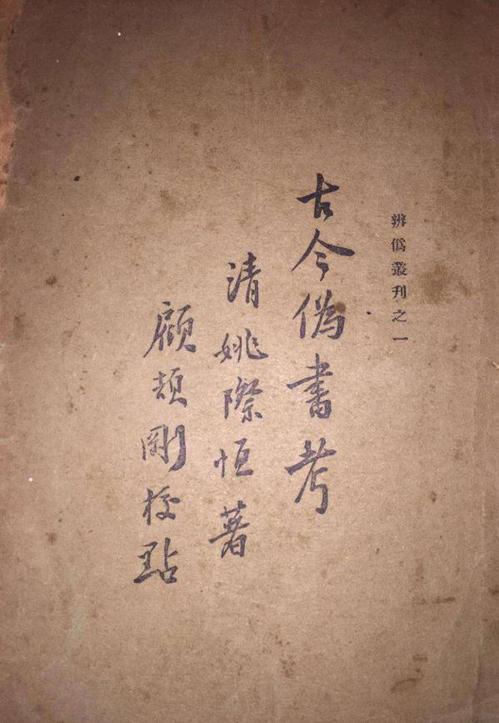 辨僞叢刊之一
古今偽書考
清姚際恒著
顧頡剛校點